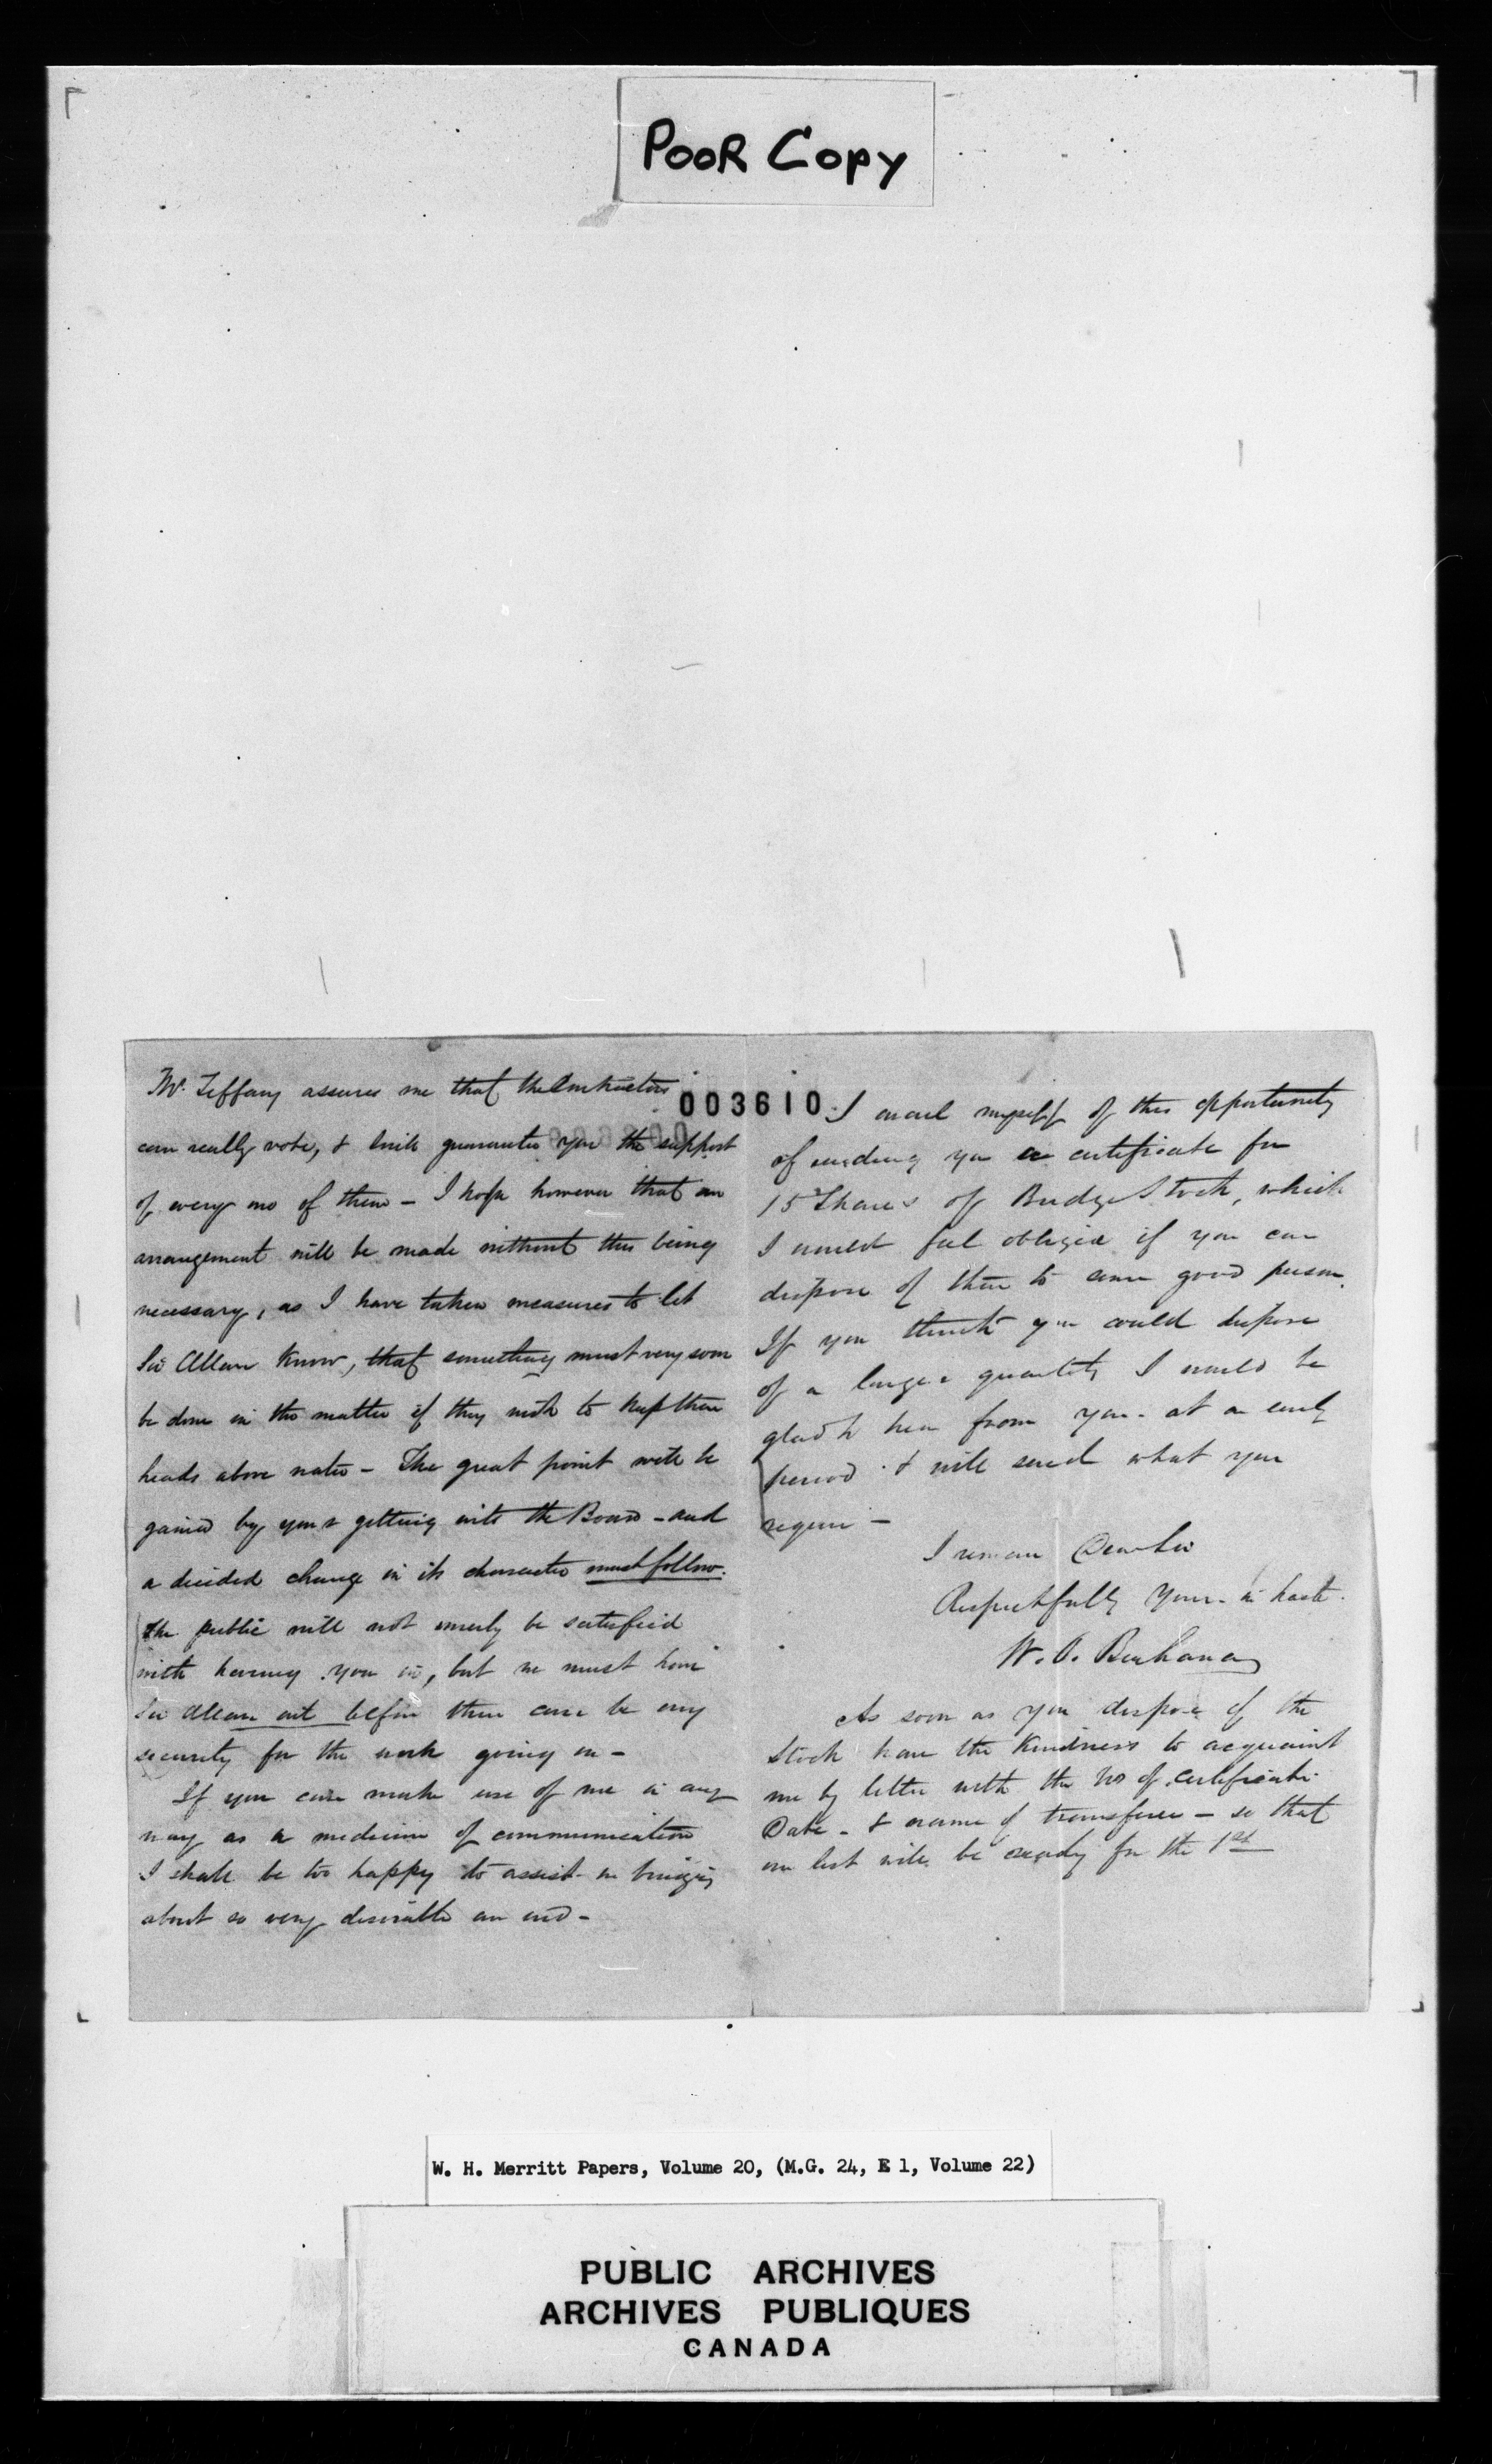 POOR COPY
Mr. Tiffany assures me that the Contractors
can really vote, & will guarantee you the support
of every one of them – I hope however that an
arrangement will be made without this being
necessary, as I have taken measures to let
Sir Allan know, that something must very soon
be done in the matter if they wish to keep their
heads above water – The great point will be
gained by your getting into the Board – and
a decided change in its character must follow.
The public will not merely be satisfied
with having you in, but we must have
Sir Allan out before there can be any
security for the work going on –
If you can make use of me in any
way as a medium of communication
I shall be too happy to assist in bringing
about so very desirable an end –
003610
I avail myself of this opportunity
of sending you a certificate for
15 Shares of Bridge Stock, which
I would feel obliged if you can
dispose of them to some good person.
If you think you could dispose
of a larger quantity I would be
glad to hear from you at an early
period & will send what you
require –
I remain Dear Sir
Respectfully Yours in haste
W. O. Buchanan
As soon as you dispose of the
Stock have the kindness to acquaint
me by letter with the No of Certificate
Date – & name of transferee – so that
our list will be ready for the 1st
W. H. Merritt Papers, Volume 20, (M.G. 24, E 1, Volume 22)
PUBLIC ARCHIVES
ARCHIVES PUBLIQUES
CANADA